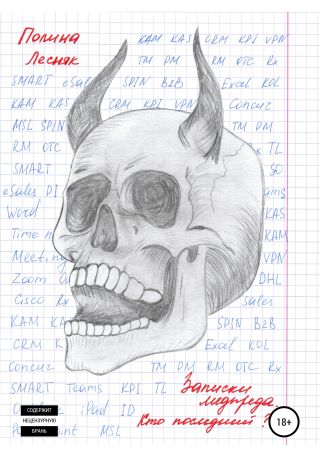 Полина
Лесняк
KAM KAS CRM KPI VPN
TM PM RM OTC Rx
SMART eSa SPIN B2B Excel KOL
KAM KAS CRM KPI VPN Concur
MSL SPIN TM PM
RM OTC Rx TL
SMART SO
eSales PI ams
Word KAS
Time m KAM
Meetin VPN
Zoom DHL
Cisco Rx Sales
KAM KA SPIN B2B
CRM K Excel KOL
Concur TM PM RM OTC Rx
SMART Teams KPI TL
iPad ID
P int MSL
Записки
медпреда.
Кто последний?
СОДЕРЖИТ
НЕЦЕНЗУРНУЮ
БРАНЬ
18+